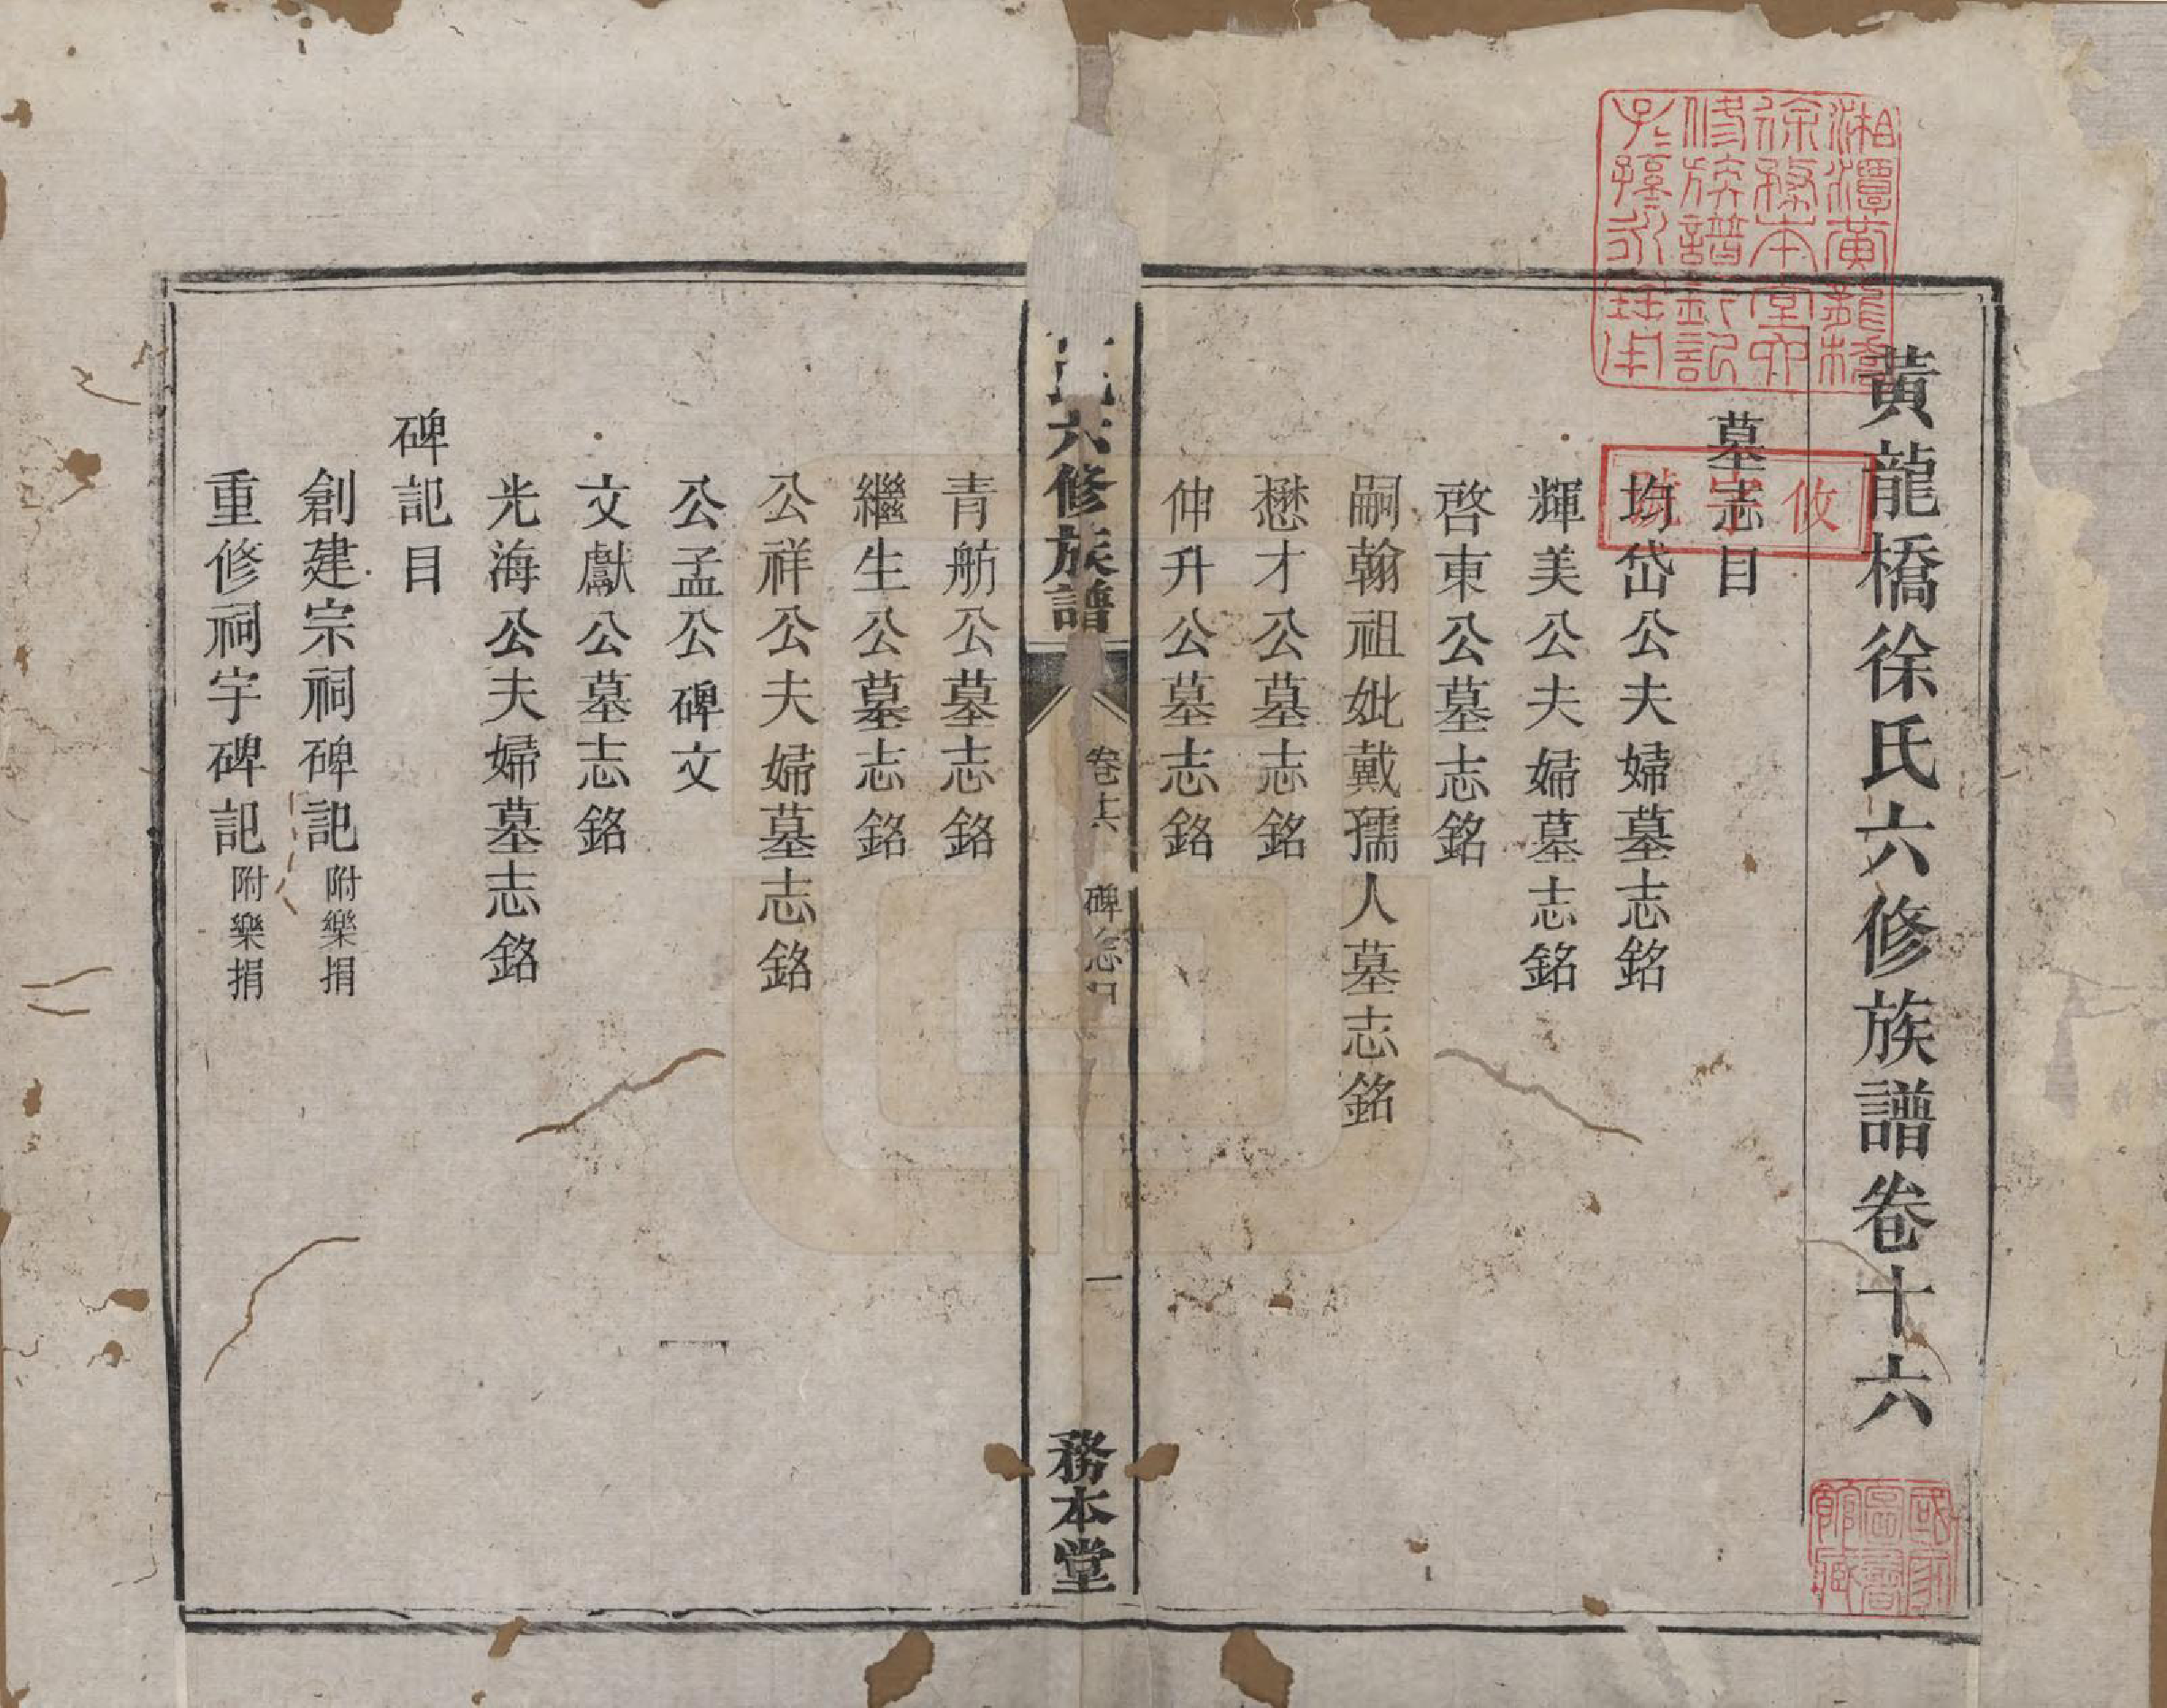 黃龍橋徐氏六修族譜卷十六
墓志目
均岱公夫婦墓志銘
輝美公夫婦墓志銘
啓東公墓志銘
嗣翰祖妣戴孺人墓志銘
懋才公墓志銘
仲升公墓志銘
六修族譜
卷十六
碑志目
一
務本堂
青舫公墓志銘
繼生公墓志銘
公祥公夫婦墓志銘
公孟公碑文
文獻公墓志銘
光海公夫婦墓志銘
碑記目
創建宗祠碑記附樂捐
重修祠宇碑記附樂捐
湘潭黃龍橋
徐務本堂六
修族譜鈐記
子孫永珤用
攸字號
國家圖書館藏